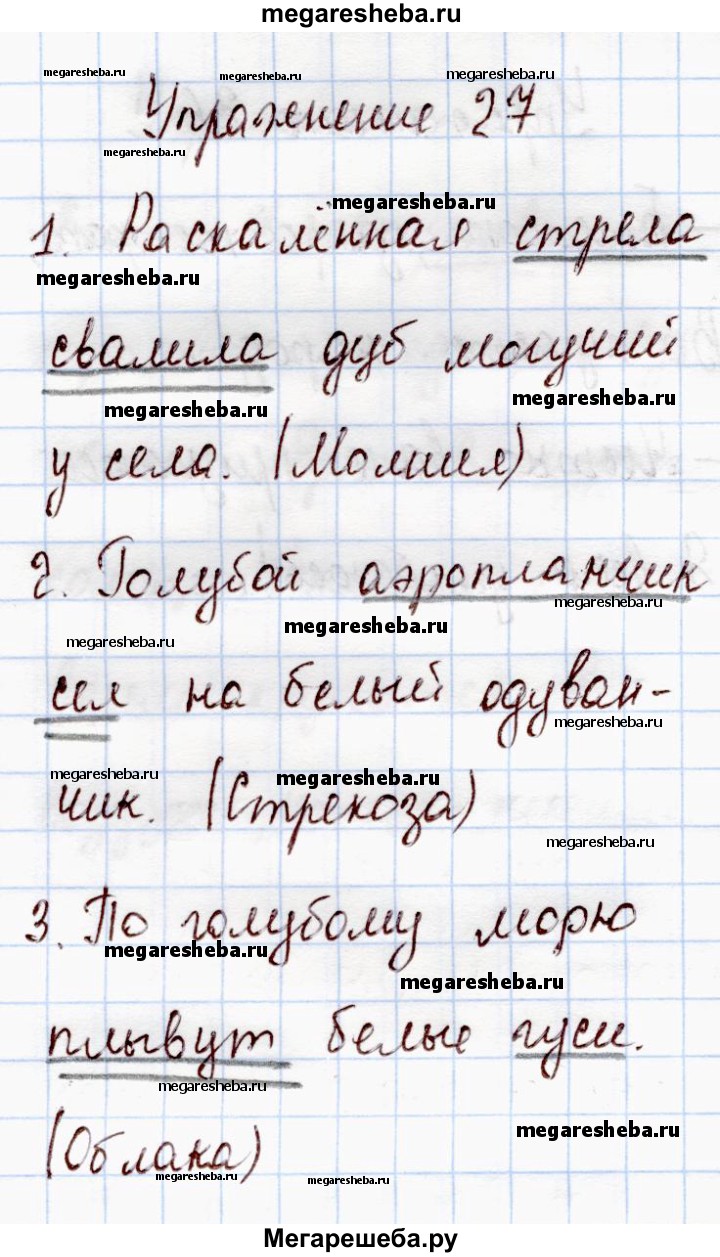 megaresheba.ru
megaresheba.ru megaresheba.ru megaresheba.ru
Упражнение 27
megaresheba.ru
megaresheba.ru
1. Раскалённая стрела
megaresheba.ru
свалила дуб могучий
megaresheba.ru megaresheba.ru
у села. (Молния)
2. Голубой аэропланчик
megaresheba.ru
megaresheba.ru
megaresheba.ru
сел на белый одуван-
megaresheba.ru
megaresheba.ru megaresheba.ru
чик. (Стрекоза)
megaresheba.ru
3. По голубому морю
megaresheba.ru
megaresheba.ru
плывут белые гуси.
megaresheba.ru
megaresheba.ru
(Облака)
megaresheba.ru megaresheba.ru
Мегарешеба.ру